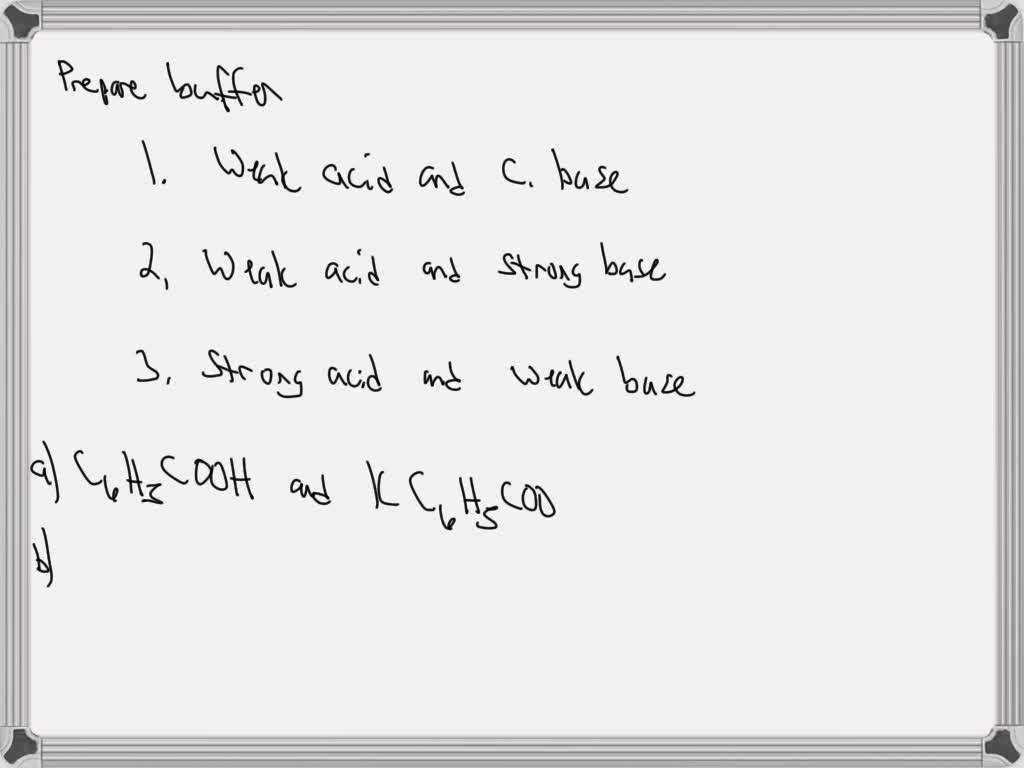 Prepare buffer
1. Weak acid and C. base
2, Weak acid and strong base
3, Strong acid and weak base
a) C₆H₅COOH and KC₆H₅COO
b)